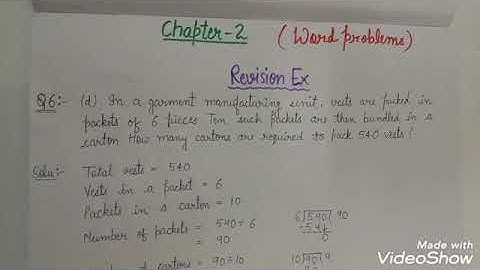 Chapter-2 (Word problems)
Revision Ex
Q6:- (d) In a garment manufacturing unit, vests are packed in
packets of 6 pieces Ten such packets are then bundled in a
carton How many cartons are required to pack 540 vests?
Solu:- Total vests = 540
Vests in a packet = 6
Packets in a carton = 10
Number of packets = 540÷6
= 90
6)540(90
-54
0
of cartons = 90÷10
10)90(9
Made with
VideoShow